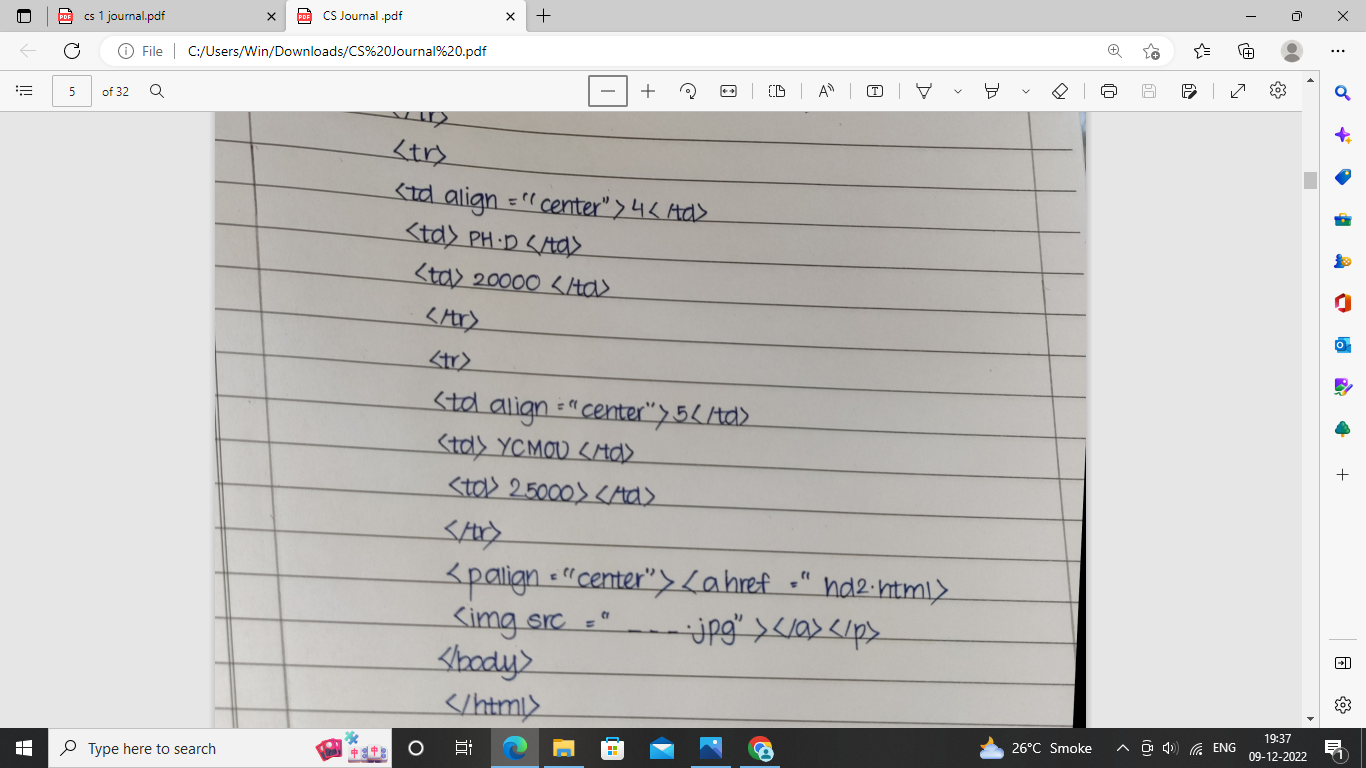 cs 1 journal.pdf
CS Journal .pdf
File
C:/Users/Win/Downloads/CS%20Journal%20.pdf
5 of 32
</tr>
<tr>
<td align = "center">4</td>
<td> PH.D </td>
<td> 20000 </td>
</tr>
<tr>
<td align = "center">5</td>
<td> YCMOU </td>
<td> 25000></td>
</tr>
<palign = "center"><ahref = " hd2.html>
<img src = " ----.jpg" ></a></p>
</body>
</html>
Type here to search
26°C Smoke
ENG
19:37
09-12-2022
1